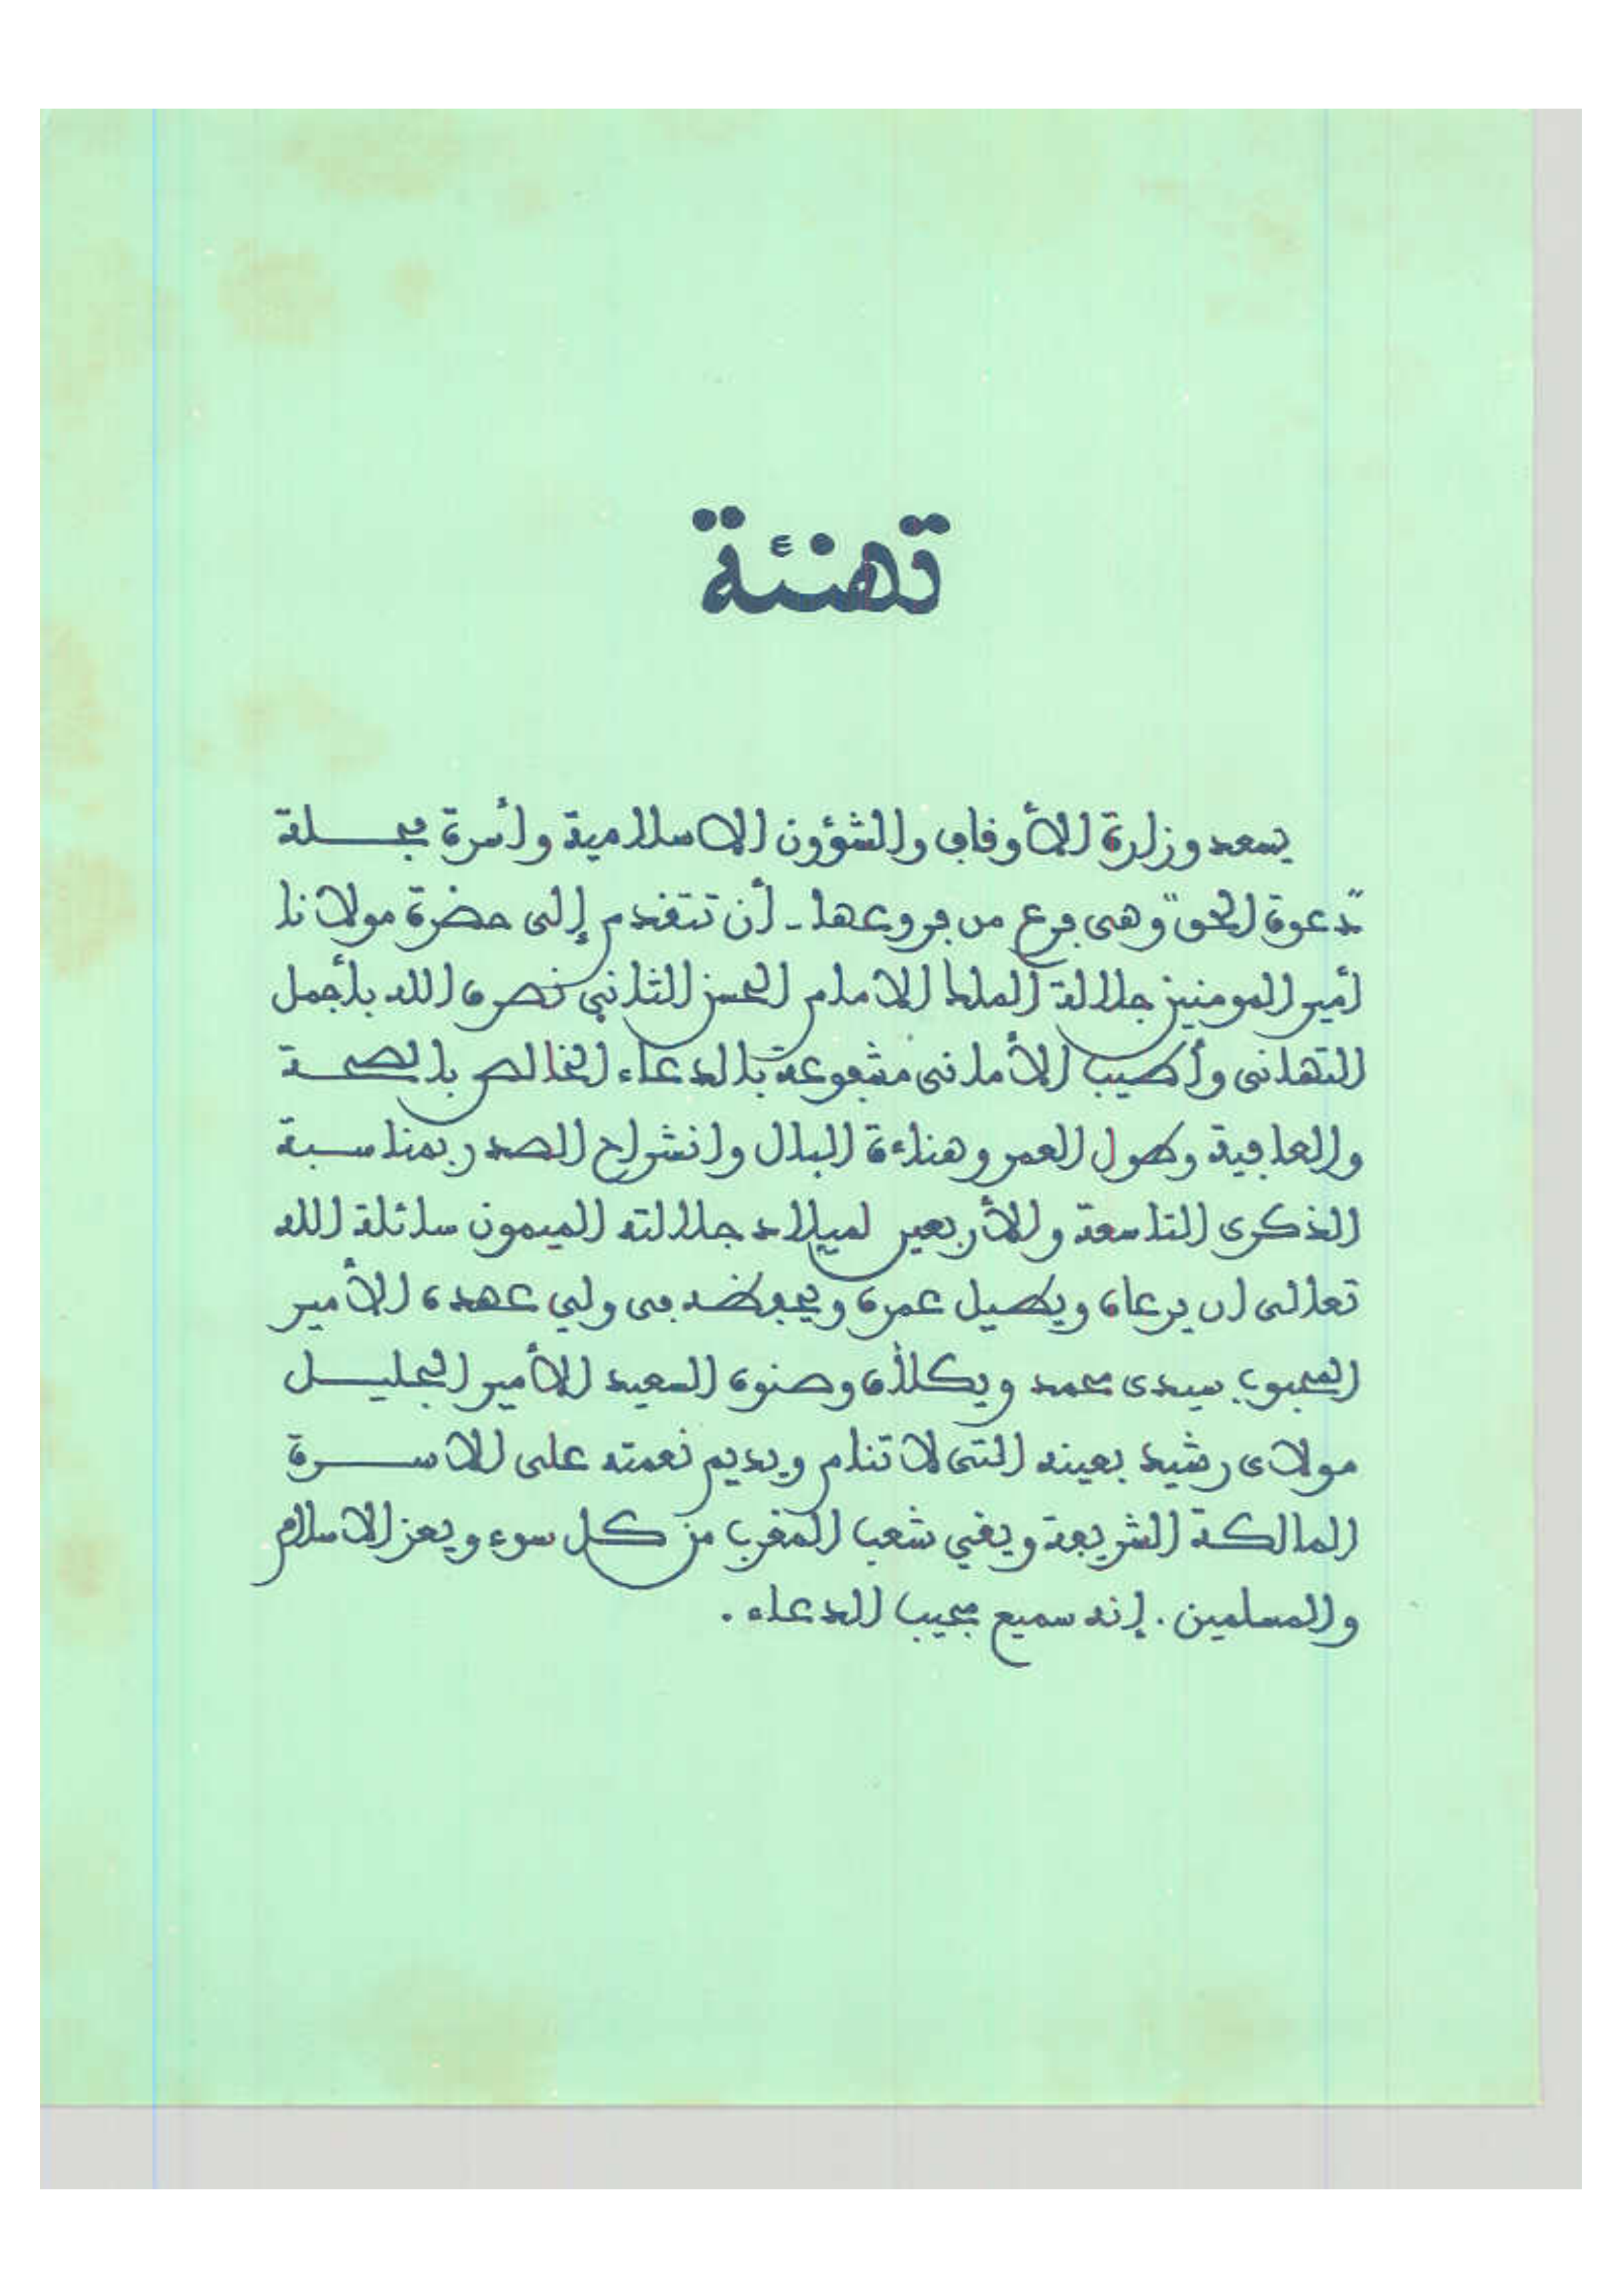 تهنئة
يسعد وزارة الأوقاف والشؤون الاسلامية وأسرة مجلة
"دعوة الحق" وهى فرع من فروعها - أن تتقدم إلى حضرة مولانا
أمير المومنين جلالة الملك الامام الحسن الثاني نصره الله بأجمل
التهانى وأطيب الأمانى مشفوعة بالدعاء الخالص بالصحة
والعافية وطول العمر وهناءة البال وانشراح الصدر بمناسبة
الذكرى التاسعة والأربعين لميلاد جلالته الميمون سائلة الله
تعالى ان يرعاه ويطيل عمره ويحفظه فى ولي عهده الأمير
المحبوب سيدى محمد ويكلأه وصنوه السعيد الأمير الجليل
مولاى رشيد بعينه التى لا تنام ويديم نعمته على الاسرة
المالكة الشريفة ويقي شعب المغرب من كل سوء ويعز الاسلام
والمسلمين . إنه سميع مجيب الدعاء .